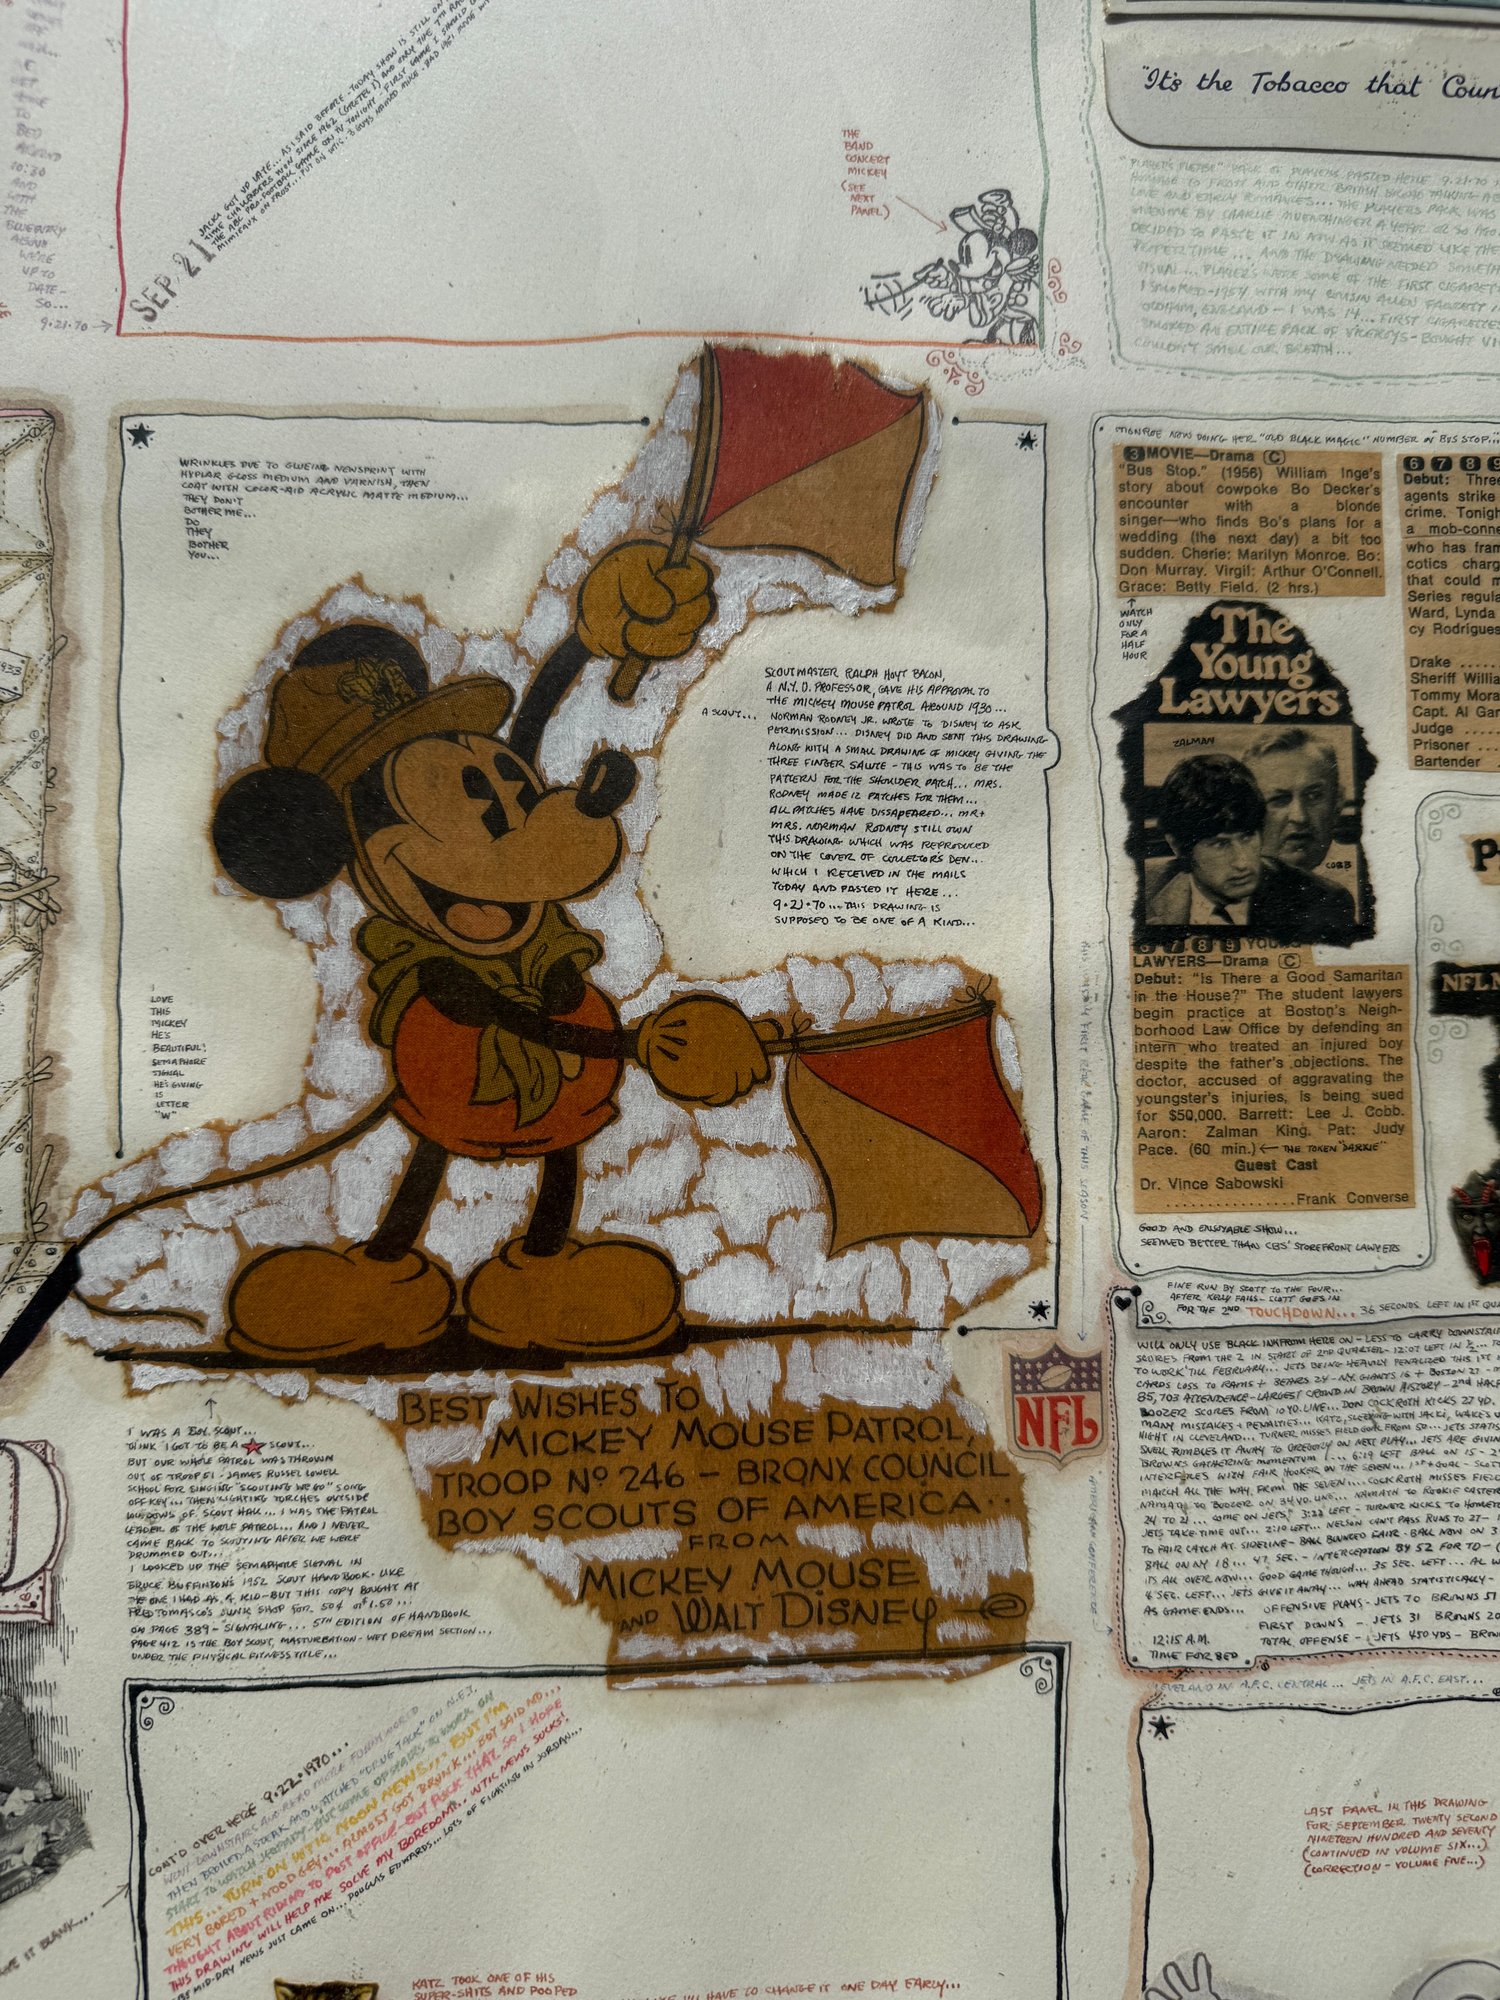 JACKI GOT UP LATE... AS I SAID BEFORE - TODAY SHOW IS STILL ON
TIME CHALLENGERS WON SINCE 1962 (GRETEL I) AND ONLY THE 7TH
THE ABC PRO-FOOTBALL GAME ON TV TONIGHT - FIRST GAME I SHOULD
MIMIEAUX ON FROST... PUT ON WTIC. 3 GUYS NAMED MIKE - BAD 1951 MOVIE
SEP 21
10:30
AND
THE
BLUE ENTRY
ABOVE
WE'RE
UP TO
DATE-
SO...
9·21·70
THE
BAND
CONCERT
MICKEY
(SEE
NEXT
PANEL)
"It's the Tobacco that Coun
PACK OF PLAYERS PASTED HERE 9.21.70
HOMAGE TO FROST AND OTHER BRITISH
LOVE AND EARLY ROMANCES... THE PLAYERS PACK WAS
BY CHARLIE MUENCHINGER A YEAR OR SO AGO
DECIDED TO PASTE IT IN NOW AS IT SEEMED LIKE THE
PROPER TIME ... AND THE DRAWING NEEDED SOMETHING
VISUAL... PLAYERS WERE SOME OF THE FIRST CIGARETTES
I SMOKED - 1954 WITH MY COUSIN ALLEN FAWCETT
OLDHAM, ENGLAND - I WAS 14... FIRST CIGARETTES
SMOKED AN ENTIRE PACK OF VICEROYS - BOUGHT
COULDN'T SMELL OUR BREATH...
WRINKLES DUE TO GLUEING NEWSPRINT WITH
HYPLAR GLOSS MEDIUM AND VARNISH, THEN
COAT WITH COLOR-AID ACRYLIC MATTE MEDIUM...
THEY DON'T
BOTHER ME...
DO
THEY
BOTHER
YOU...
SCOUTMASTER RALPH HOYT BACON,
A N.Y.U. PROFESSOR, GAVE HIS APPROVAL TO
THE MICKEY MOUSE PATROL AROUND 1930...
A SCOUT... NORMAN RODNEY JR. WROTE TO DISNEY TO ASK
PERMISSION... DISNEY DID AND SENT THIS DRAWING
ALONG WITH A SMALL DRAWING OF MICKEY GIVING THE
THREE FINGER SALUTE - THIS WAS TO BE THE
PATTERN FOR THE SHOULDER PATCH... MRS.
RODNEY MADE 12 PATCHES FOR THEM...
ALL PATCHES HAVE DISSAPEARED... MR +
MRS. NORMAN RODNEY STILL OWN
THIS DRAWING WHICH WAS REPRODUCED
ON THE COVER OF COLLECTOR'S DEN...
WHICH I RECEIVED IN THE MAILS
TODAY AND PASTED IT HERE...
9·21·70... THIS DRAWING IS
SUPPOSED TO BE ONE OF A KIND...
I
LOVE
THIS
MICKEY
HE'S
BEAUTIFUL!
SEMAPHORE
SIGNAL
HE'S GIVING
IS
LETTER
"W"
BEST WISHES TO
MICKEY MOUSE PATROL,
TROOP Nº 246 – BRONX COUNCIL
BOY SCOUTS OF AMERICA··
FROM
MICKEY MOUSE
AND WALT DISNEY
NFL
I WAS A BOY SCOUT...
THINK I GOT TO BE A ★ SCOUT...
BUT OUR WHOLE PATROL WAS THROWN
OUT OF TROOP 51 - JAMES RUSSEL LOWELL
SCHOOL FOR SINGING "SCOUTING WE GO" SONG
OFF KEY... THEN LIGHTING TORCHES OUTSIDE
WINDOWS OF SCOUT HALL... I WAS THE PATROL
LEADER OF THE WOLF PATROL... AND I NEVER
CAME BACK TO SCOUTING AFTER WE WERE
DRUMMED OUT...
I LOOKED UP THE SEMAPHORE SIGNAL IN
BRUCE BUFFINTON'S 1952 SCOUT HANDBOOK - LIKE
THE ONE I HAD AS A KID - BUT THIS COPY BOUGHT AT
FRED TOMASCO'S JUNK SHOP FOR 50¢ or $1.50...
ON PAGE 389 - SIGNALING... 5TH EDITION OF HANDBOOK
PAGE 412 IS THE BOY SCOUT, MASTURBATION - WET DREAM SECTION...
UNDER THE PHYSICAL FITNESS TITLE...
MONROE NOW DOING HER "OLD BLACK MAGIC" NUMBER IN BUS STOP...
3 MOVIE—Drama (C)
"Bus Stop." (1956) William Inge's
story about cowpoke Bo Decker's
encounter with a blonde
singer—who finds Bo's plans for a
wedding (the next day) a bit too
sudden. Cherie: Marilyn Monroe. Bo:
Don Murray. Virgil: Arthur O'Connell.
Grace: Betty Field. (2 hrs.)
WATCH
ONLY
FOR A
HALF
HOUR
The
Young
Lawyers
ZALMAN
COBB
6 7 8 9 YOUNG
LAWYERS—Drama (C)
Debut: "Is There a Good Samaritan
in the House?" The student lawyers
begin practice at Boston's Neigh-
borhood Law Office by defending an
intern who treated an injured boy
despite the father's objections. The
doctor, accused of aggravating the
youngster's injuries, is being sued
for $50,000. Barrett: Lee J. Cobb.
Aaron: Zalman King. Pat: Judy
Pace. (60 min.) ← THE TOKEN "DARKIE"
Guest Cast
Dr. Vince Sabowski
...............Frank Converse
GOOD AND ENJOYABLE SHOW...
SEEMED BETTER THAN CBS' STOREFRONT LAWYERS
6 7 8 9
Debut: Three
agents strike
crime. Tonigh
a mob-conne
who has fram
cotics charg
that could m
Series regula
Ward, Lynda
cy Rodrigues
Drake .....
Sheriff Willia
Tommy Mora
Capt. Al Gar
Judge .....
Prisoner ....
Bartender
P
NFL
FINE RUN BY SCOTT TO THE FOUR...
AFTER KELLY FAILS - SCOTT GOES IN
FOR THE 2ND TOUCHDOWN... 36 SECONDS LEFT IN 1ST QUA
WILL ONLY USE BLACK INK FROM HERE ON - LESS TO CARRY DOWNSTAIRS
SCORES FROM THE 2 IN START OF 2ND QUARTER - 12:07 LEFT IN ½...
TO WORK 'TILL FEBRUARY... JETS BEING HEAVILY PENALIZED THIS 1ST
CARDS LOSS TO RAMS + BEARS 24 - N.Y. GIANTS 16 + BOSTON 27 -
85,703 ATTENDENCE - LARGEST CROWD IN BROWN HISTORY - 2nd HALF
BOOZER SCORES FROM 10 YD. LINE... DON COCKROTH KICKS 27 YD.
MANY MISTAKES + PENALTIES... KATZ, SLEEPING WITH JACKI, WAKES
NIGHT IN CLEVELAND... TURNER MISSES FIELD GOAL FROM 50... JETS STATIS
SNELL FUMBLES IT AWAY TO GREGORY ON NEXT PLAY... JETS ARE GIVING
BROWNS GATHERING MOMENTUM!... 6:19 LEFT BALL ON 15 -
INTERFERES WITH FAIR HOOKER ON THE SEVEN... 1ST + GOAL - SCOTT
MARCH ALL THE WAY FROM THE SEVEN... COCKROTH MISSES FIELD
NAMATH TO BOOZER ON 34 YD. LINE... NAMATH TO ROOKIE CASTER
24 TO 21... COME ON JETS! 3:22 LEFT - TURNER KICKS TO HOMETO
JETS TAKE TIME OUT... 2:10 LEFT... NELSON CAN'T PASS RUNS TO 27-
TO FAIR CATCH AT SIDELINE - BALL BLUNDED FAIR - BALL NOW ON 3
BALL ON NY 18... 47 SEC. - INTERCEPTION BY 52 FOR TD-
IT'S ALL OVER NOW... GOOD GAME THOUGH... 35 SEC. LEFT...
8 SEC. LEFT... JETS GIVE IT AWAY... WAY AHEAD STATISTICALLY -
AS GAME ENDS... OFFENSIVE PLAYS - JETS 70 BROWNS 51
FIRST DOWNS - JETS 31 BROWNS 20
12:15 A.M. TOTAL OFFENSE - JETS 450 YDS - BROW
TIME FOR BED
CLEVELAND IN A.F.C. CENTRAL... JETS IN A.F.C. EAST...
LAST PANEL IN THIS DRAWING
FOR SEPTEMBER TWENTY SECOND
NINETEEN HUNDRED AND SEVENTY
(CONTINUED IN VOLUME SIX...)
(CORRECTION - VOLUME FIVE...)
CONT'D OVER HERE 9·22·1970...
WENT DOWNSTAIRS AND READ MORE
THEN BROILED A STEAK AND WATCHED "DRUG TALK" ON N.E.T.
START TO WATCH JEOPARDY - BUT COME UPSTAIRS TO WORK ON
THIS... TURN ON WTIC NOON NEWS... BUT I'M
VERY BORED + NOODGEY... ALMOST GOT DRUNK... BUT SAID NO...
THOUGHT ABOUT RIDING TO POST OFFICE - BUT FUCK THAT SO I HOPE
THIS DRAWING WILL HELP ME SOLVE MY BOREDOM... WTIC NEWS SUCKS!
CBS MID-DAY NEWS JUST CAME ON... DOUGLAS EDWARDS... LOTS OF FIGHTING IN JORDAN...
IT BLANK...
KATZ TOOK ONE OF HIS
SUPER-SHITS AND POOPED
I'LL HAVE TO CHANGE IT ONE DAY EARLY...